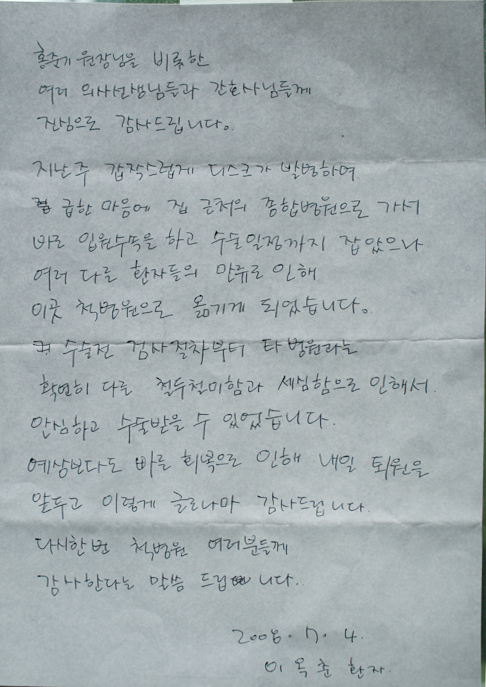 홍준기 원장님을 비롯한
여러 의사선생님들과 간호사님들께
진심으로 감사드립니다.
지난주 갑작스럽게 디스크가 발병하여
급한 마음에 집 근처의 종합병원으로 가서
바로 입원수속을 하고 수술일정까지 잡았으나
여러 다른 환자들의 만류로 인해
이곳 척병원으로 옮기게 되었습니다.
수술전 검사절차부터 타병원과는
확연히 다른 철두철미함과 세심함으로 인해서
안심하고 수술받을 수 있었습니다.
예상보다도 빠른 회복으로 인해 내일 퇴원을
앞두고 이렇게 글로나마 감사드립니다.
다시한번 척병원 여러분들께
감사한다는 말씀 드립니다.
2008. 7. 4.
이옥춘 환자.